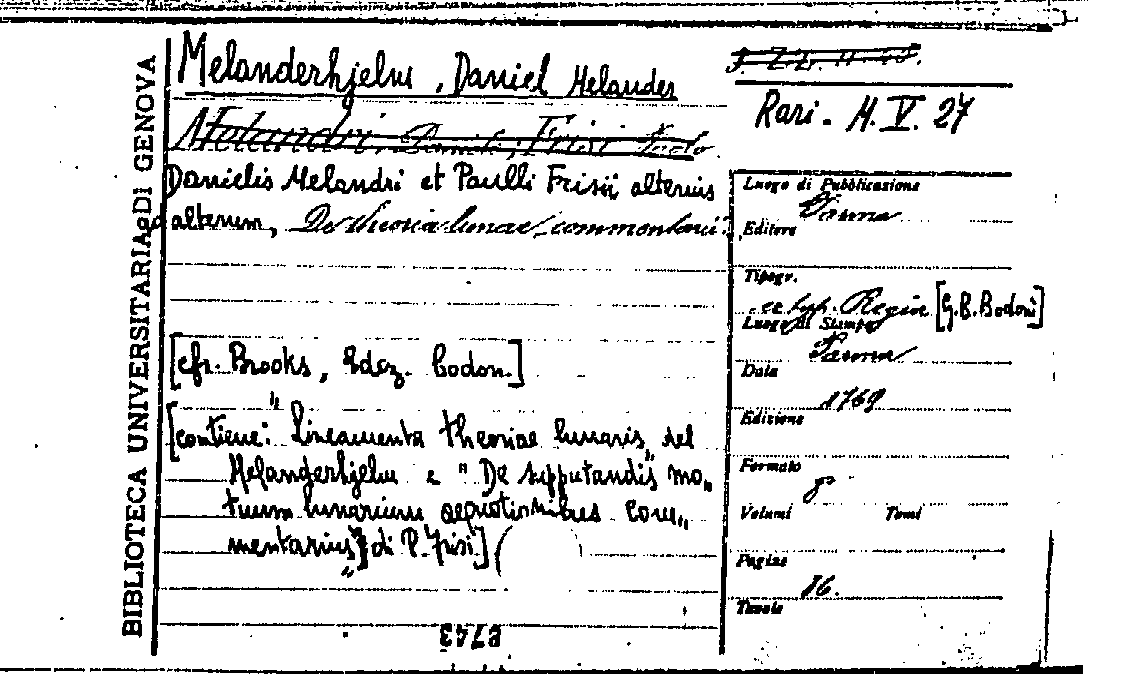 BIBLIOTECA UNIVERSITARIA DI GENOVA
Melanderhjelm, Daniel Melander
Melandri, Daniele, Frisi Paolo
Danielis Melandri et Paulli Frisii alterius
ad alterum, De theoria lunae, commentarii.
[cfr. Brooks, Ediz. bodon.]
[contiene: "Lineamenta theoriae lunaris" del
Melanderhjelm e "De supputandis mo„
tuum lunarium aequationibus com„
mentarius" di P. Frisi]
Rari. M. V. 27
Luogo di Pubblicazione
Parma
Editore
Tipogr.
ex typ. Regia [G.B. Bodoni]
Luogo di Stampa
Parma
Data
1769
Edizione
Formato
8
Volumi Tomi
Pagine
16.
Tavole